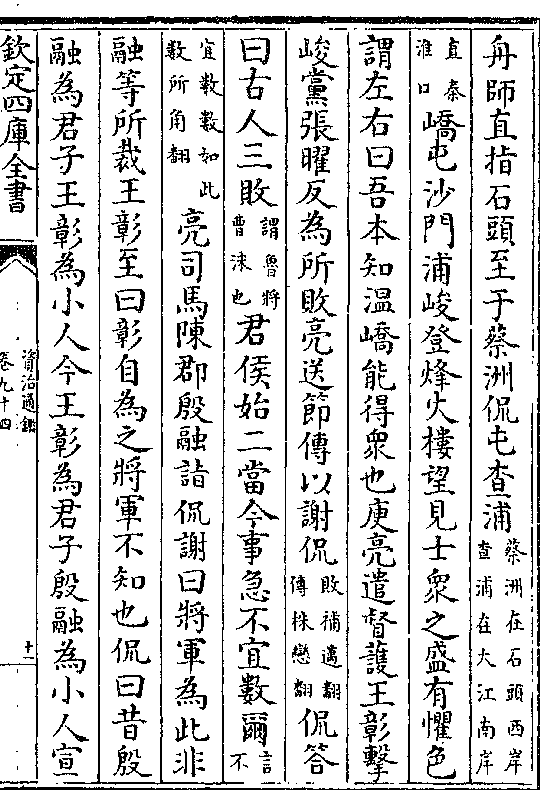 舟師直指石頭至于蔡洲侃屯查浦蔡洲在石頭西岸查浦在大江南岸
直秦淮口嶠屯沙門浦峻登烽火樓望見士衆之盛有懼色
謂左右曰吾本知温嶠能得衆也庾亮遣督䕶王彰擊
峻黨張曜反為所敗亮送節傳以謝侃敗補邁翻傳株戀翻侃答
曰古人三敗謂魯將曹沬也君侯始二當今事急不宜數爾言不
宜數數如此數所角翻亮司馬陳郡殷融詣侃謝曰將軍為此非
融等所裁王彰至曰彰自為之將軍不知也侃曰昔殷
融為君子王彰為小人今王彰為君子殷融為小人宣
欽定四庫全書
資治通鑑
卷九十四
十一